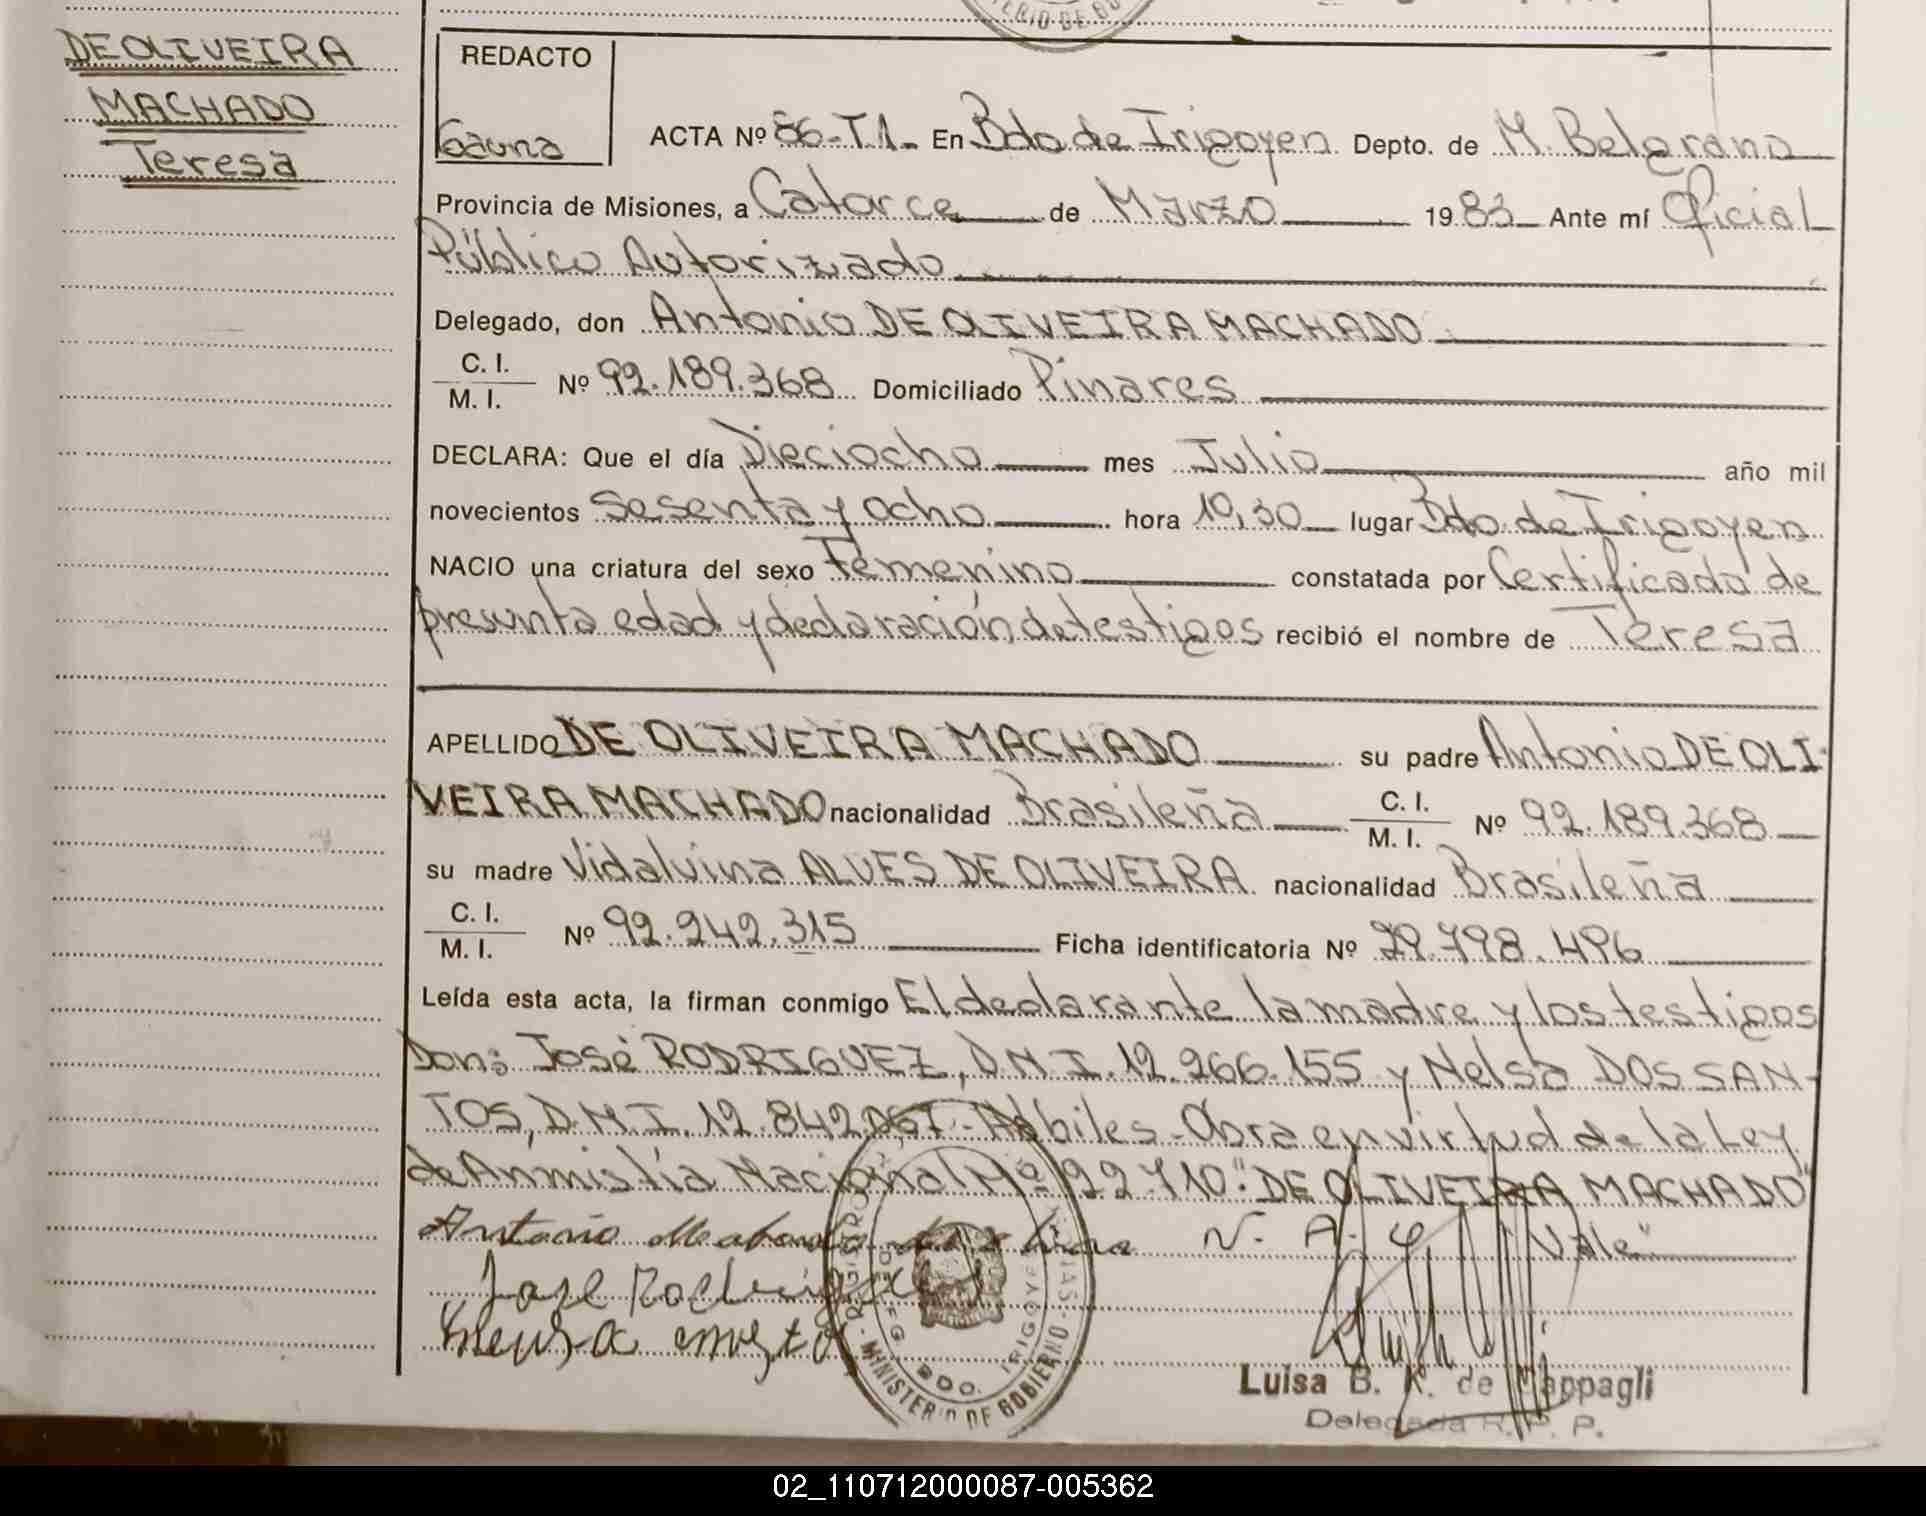 DE OLIVEIRA
MACHADO
Teresa
REDACTO
Gauna
ACTA Nº 86-T1- En Bdo de Irigoyen Depto. de M. Belgrano
Provincia de Misiones, a Catorce de Marzo 1983 Ante mí Oficial
Público Autorizado
Delegado, don Antonio DE OLIVEIRA MACHADO
C. I.
M. I.
Nº 92.189.368 Domiciliado Pinares
DECLARA: Que el día Dieciocho mes Julio año mil
novecientos Sesenta y ocho hora 10,30 lugar Bdo. de Irigoyen
NACIO una criatura del sexo Femenino constatada por Certificado de
presunta edad y declaración de testigos recibió el nombre de Teresa
APELLIDO DE OLIVEIRA MACHADO su padre Antonio DE OLI-
VEIRA MACHADO nacionalidad Brasileña C. I. M. I. Nº 92.189.368
su madre Vidalvina ALVES DE OLIVEIRA nacionalidad Brasileña
C. I.
M. I.
Nº 92.242.315 Ficha identificatoria Nº 29.798.496
Leída esta acta, la firman conmigo El declarante la madre y los testigos
Don: José RODRIGUEZ, D.N.I. 12.266.155 y Nelsa DOS SAN-
TOS, D.N.I. 12.842.067.- Hábiles - Obra en virtud de la Ley
de Anmistía Nacional Nº 22.710. "DE OLIVEIRA MACHADO"
Antonio
Vale"
Jose
MINISTERIO DE GOBIERNO
BDO. IRIGOYEN
Luisa B. K. de Mappagli
Delegada R. P. P.
02_110712000087-005362